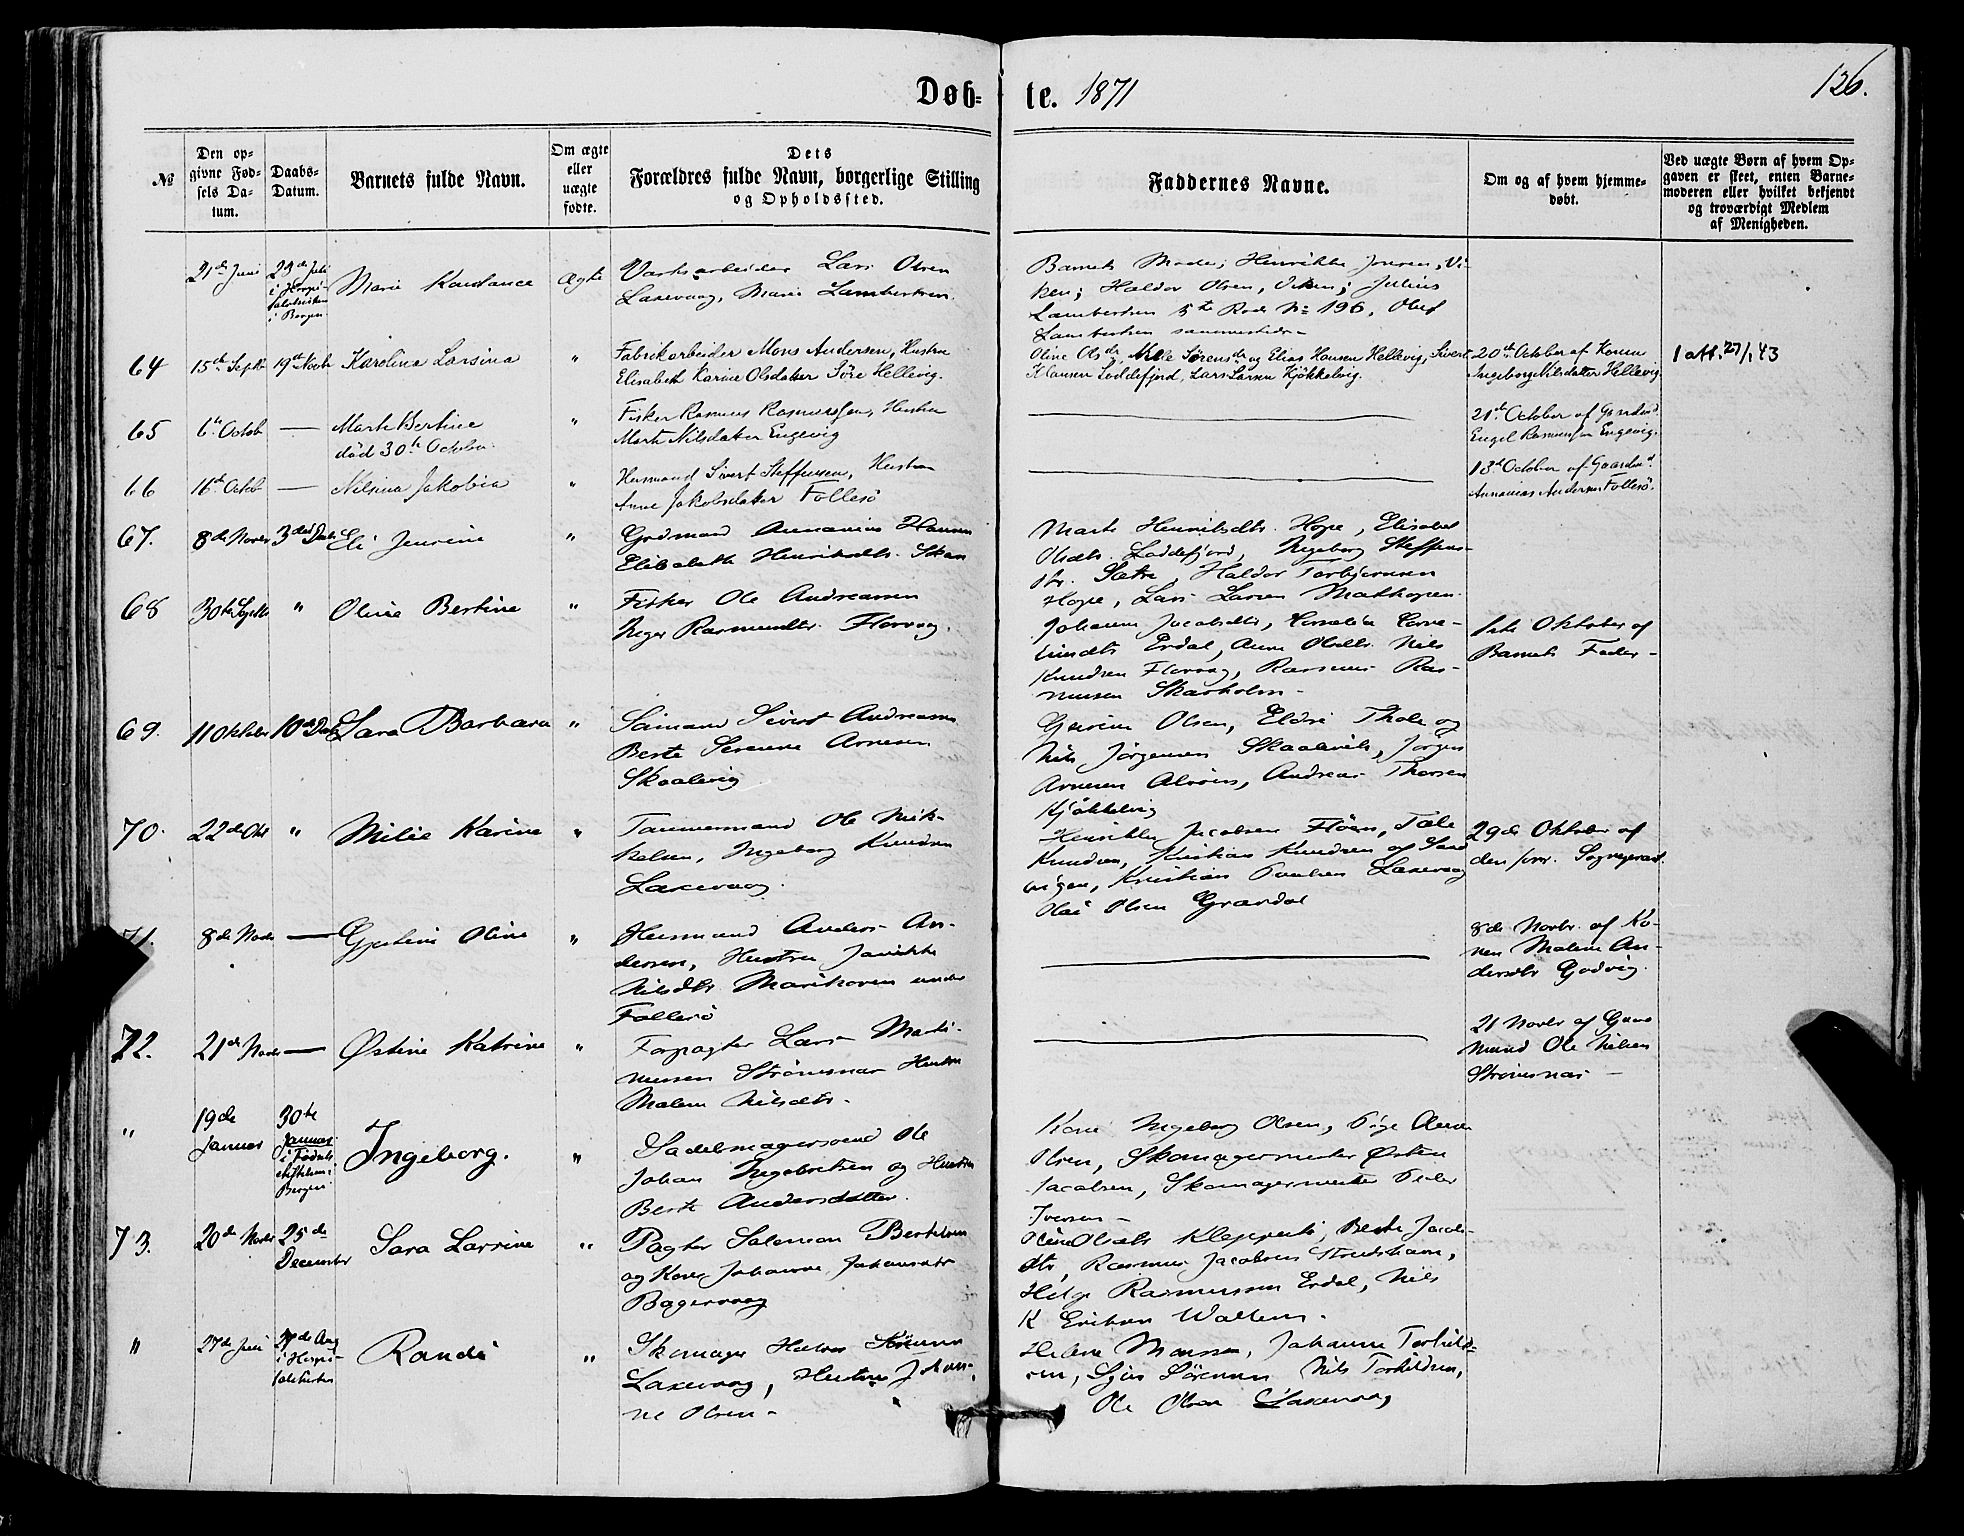 Døb= te. 1871
126.
№
Den op-
givne Fød-
sels Da-
tum.
Daabs-
Datum.
Barnets fulde Navn.
Om ægte
eller
uægte
fødte.
Dets
Forældres fulde Navn, borgerlige Stilling
og Opholdssted.
Faddernes Navne.
Om og af hvem hjemme-
døbt.
Ved uægte Børn af hvem Op-
gaven er skeet, enten Barne-
moderen eller hvilket bekjendt
og troværdigt Medlem
af Menigheden.
21de Juni
23de Juli
i Hospi-
talskirken
i Bergen
Marie Konstance
Ægte
Lars Olsen
Laxevaag, Marie Lambertsen.
Barnets Moder, Henrikke Jonsen, Vi-
ken; Haldor Olsen, Viken; Julius
Lambertsen 5te Rode No 196, Oluf
Lambertsen sammesteds-
64
15de Septbr
19de Novbr
Karolina Larsina
"
Fabrikarbeider Mons Andersen, Hustru
Elisabeth Karine Olsdatter Søre Hellevig.
Oline Olsdr, Sørensdr og Elias Hansen Hellevig, Sivert
Klausen Loddefjord, Lars Larsen Kjøkkelvig.
20de October af Konen
Ingeborg Nilsdatter Hellevig.
1 att. 27/1 43
65
6te Octob
—
Marte Bertine
død 30te October
"
Fisker Rasmus Rasmussen, Hustru
Marte Nilsdatter Engevig
21de October af Gaardmd
Engel Rasmussen Engevig.
66
16de Octob
—
Nilsina Jakobia
"
Husmand Sivert Steffensen, Hustru
Anne Jakobsdatter Follesø
October af Gaardmd
Annanias Andersen Follesø.
67.
8de Novbr
3die Decb
Eli Jensine
"
Grdmand Annanias Hansen
Elisabeth Henriksdtr. Skar
Marte Henriksdtr. Hope, Elisabet
Olsdtr. Loddefjord, Ingeborg Steffens-
dtr. Sætre, Haldor Torbjørnsen
Hope, Lars Larsen Mathopen.
68
30te Septb
"
Oline Bertine
"
Fisker Ole Andreassen
Inger Rasmusdtr. Florvaag.
Johanne Jacobsdtr, Kornelia Corne-
liusdtr Erdal, Anne Olsdtr. Nils
Knudsen Florvaag, Rasmus Ras-
mussen Skarholm-
1ste Oktober af
Barnets Fader-
69.
11 Oktbr
10de Decb
Sara Barbara
"
Sømand Sivert Andreassen
Berte Serene Arnesen
Skaalevig
Gurine Olsen, Eldri Thole og
Nils Jørgensen Skaalevik, Jørgen
Arnesen Alvøen, Andreas Thorsen
Kjøkkelvig
70.
22de Okt
"
Milie Karine
"
Tømmermand Ole Mik-
kelsen, Ingeborg Knudsen
Laxevaag.
Henrikke Jacobsen Fløen, Tale
Knudsen, Kristian Knudsen af Sand
vigen, Kristian Poulsen Laxevaag
Olai Olsen Gravdal
29de Oktober af
den forr. Sognepræst
71.
8de Novbr
—
Gjertine Oline
"
Husmand Anders An-
dersen, Hustru Jannikke
Nilsdtr Marikoven under
Follesø
8de Novbr. af Ko-
nen Malene An-
dersdtr Godvig.
72.
21de Novbr
—
Østine Katrine
"
Forpagter Lars Marti-
nussen Strømsnæs Hustru
Malene Nilsdtr.
21 Novbr af Gaard
mand Ole Nilsen
Strømsnæs —
"
19de
Januar
30te
Januar
i Fødsels
stiftelsen i
Bergen
Ingeborg.
"
Sadelmagersvend Ole
Johan Ingebretsen og Hustru
Berte Andersdatter.
Kone Ingeborg Olsen, Pige Anna
Olsen, Skomagermester Østen
Jacobsen, Skomagermester Peder
Iversen-
73.
20de Novbr
25de
December
Sara Larsine
"
Pagter Salomon Bertelsen
og Kone Johanne Johansdtr
Bagervaag
Oline Olsdtr Kleppestø, Berte Jacobs-
dtr, Rasmus Jacobsen Strudshavn,
Helge Rasmussen Erdal, Nils
K Eriksen Wallem.
"
27de Juni
27de Aug
i Hospi-
talskirken
Randi
"
Skomager Halvor
Laxevaag, Hustru Johan-
ne Olsen-
Helene Monsen, Johanne Torkild-
sen, Sørensen Nils Torkildsen,
Ole Olsen Laxevaag